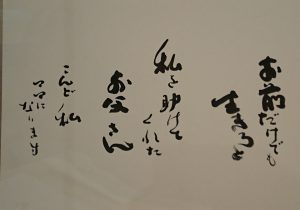 お前だけでも
生きろと
私を助けて
くれた
お父さん
こんど私
ママに
なります